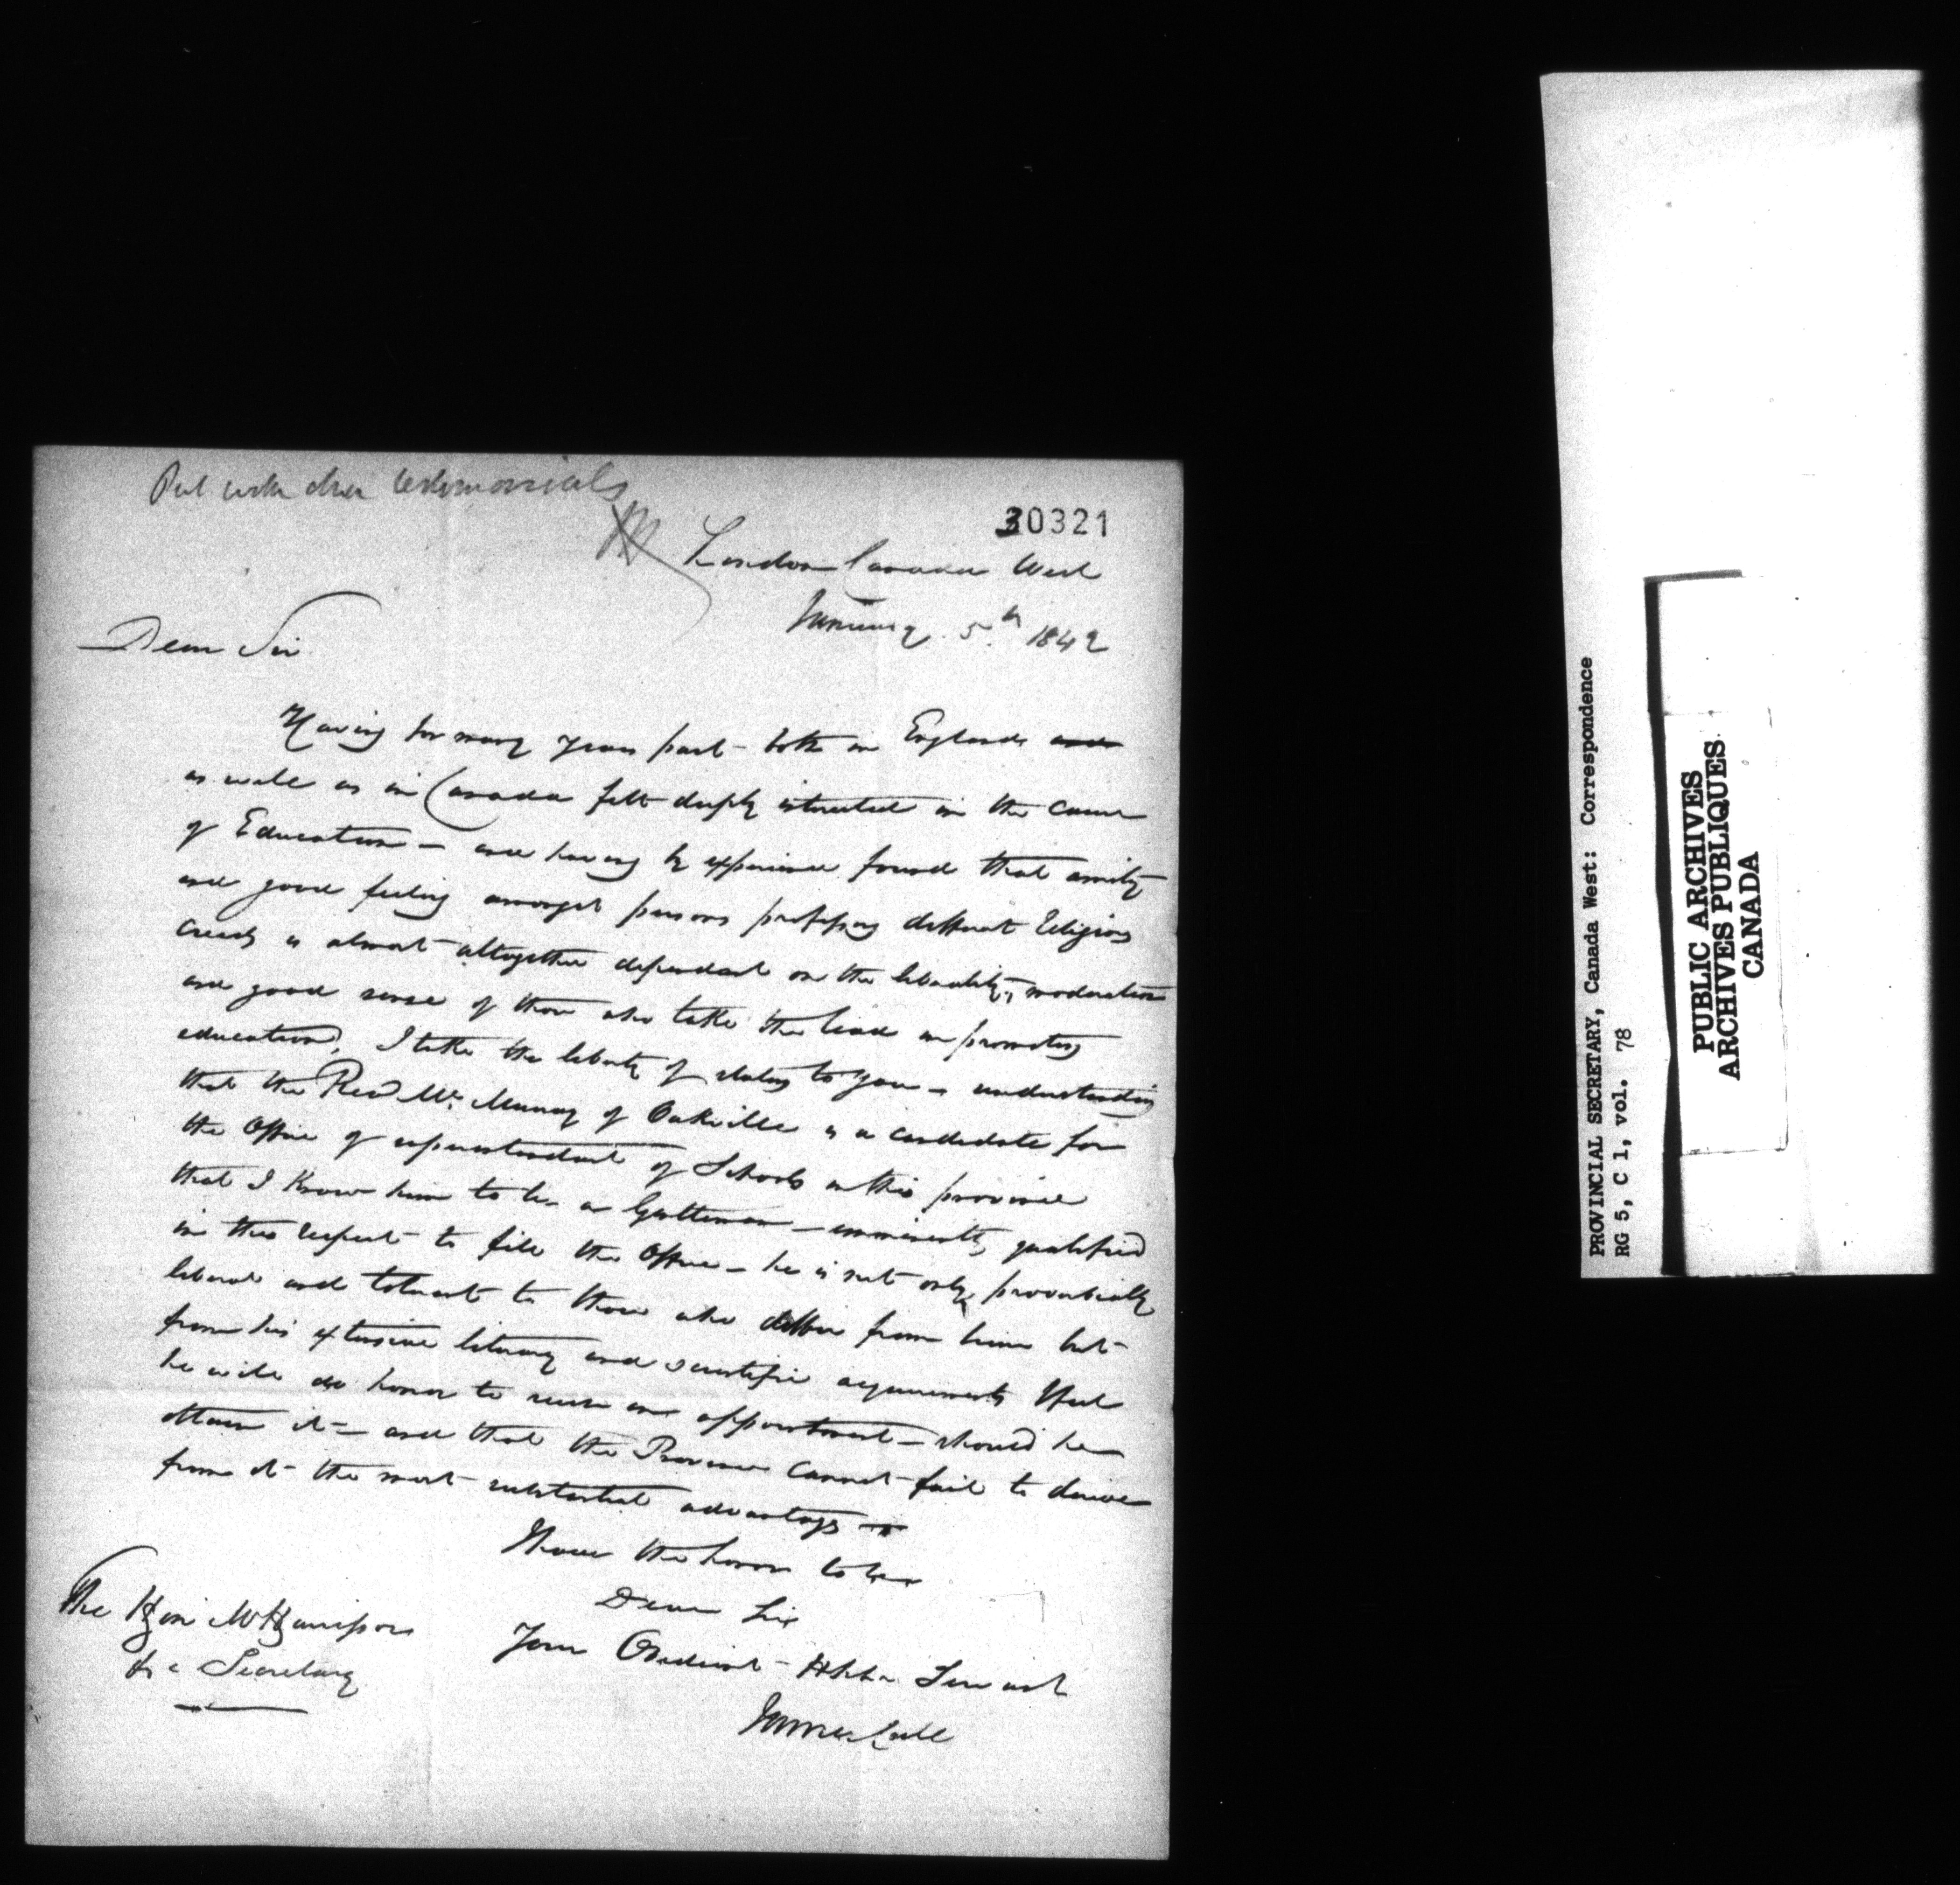 Put with other testimonials
30321
London Canada West
January 5th 1842
Dear Sir
Having for many years past - both in England and
as well as in Canada felt deeply interested in the cause
of Education - and having by experience found that amity
and good feeling amongst persons professing different religious
creeds is almost altogether dependant on the liberality, moderation
and good sense of those who take the lead in promoting
education, I take the liberty of stating to you - understanding
that the Revd Mr. Murray of Oakville is a candidate for
the Office of superintendant of Schools in this province
that I know him to be a Gentleman - eminently qualified
in this respect to fill the Office - he is not only proverbially
liberal and tolerant to those who differ from him but
from his extensive literary and scientific acquirements that
he will do honor to such an appointment - should he
obtain it - and that the Province cannot fail to derive
from it the most substantial advantages
I have the honor to be
Dear Sir
Your Obedient Hble Servant
James
The Hon Mr Harrison
&c Secretary
PROVINCIAL SECRETARY, Canada West: Correspondence
RG 5, C 1, vol. 78
PUBLIC ARCHIVES
ARCHIVES PUBLIQUES
CANADA